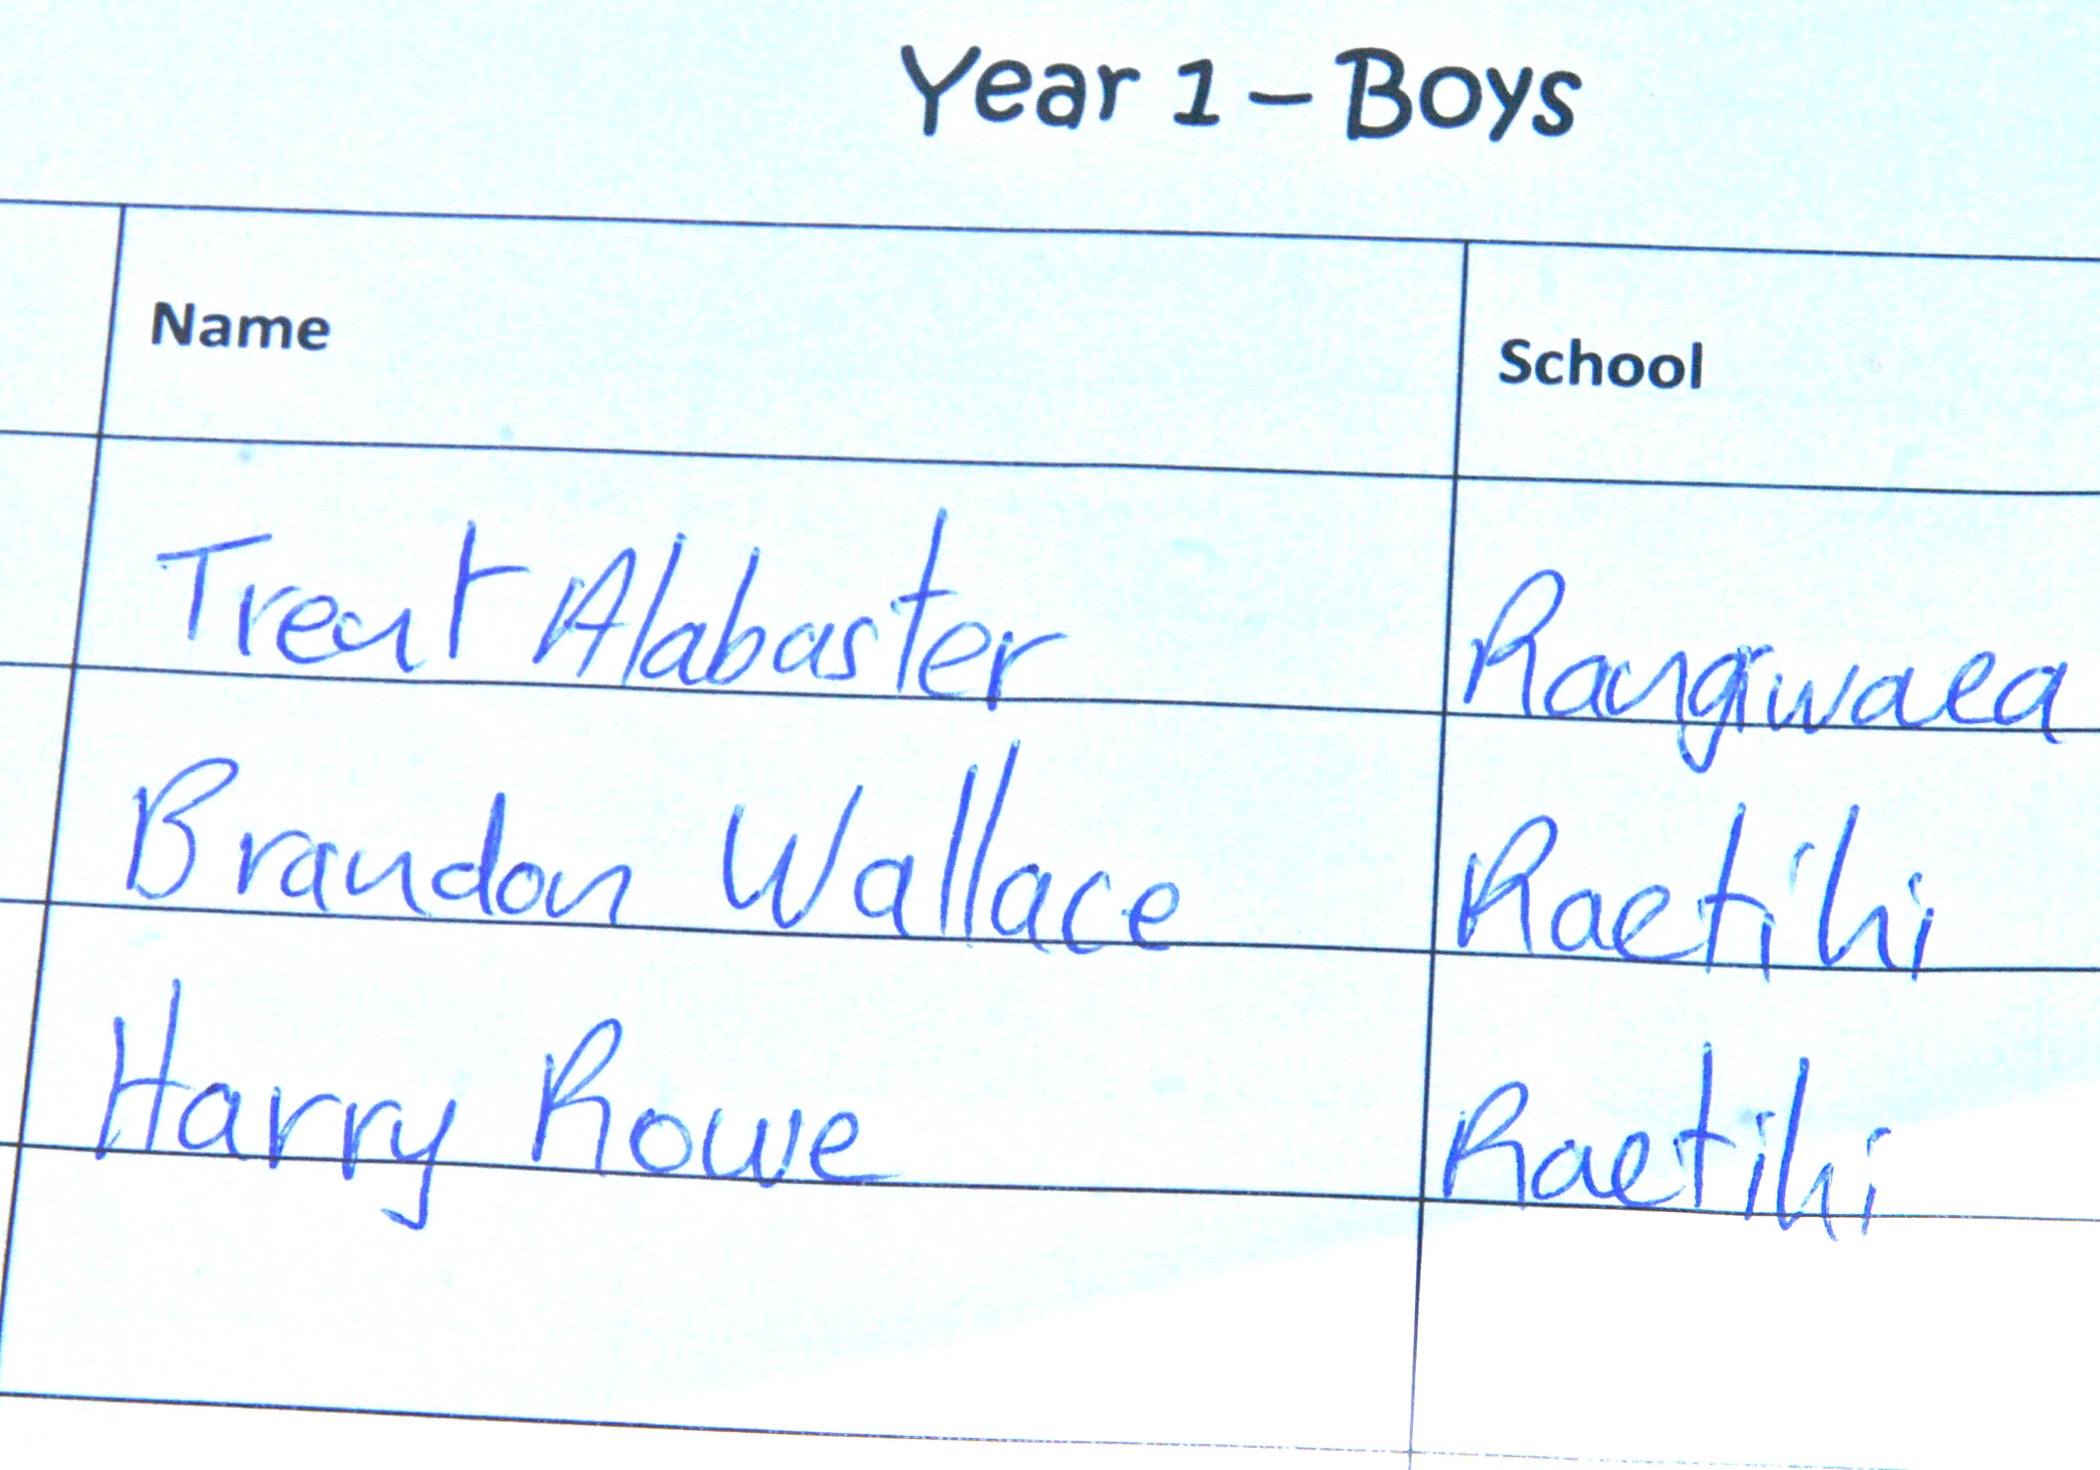 Year 1 – Boys
Name School
Trent Alabaster Rangiwaea
Brandon Wallace Raetihi
Harry Rowe Raetihi